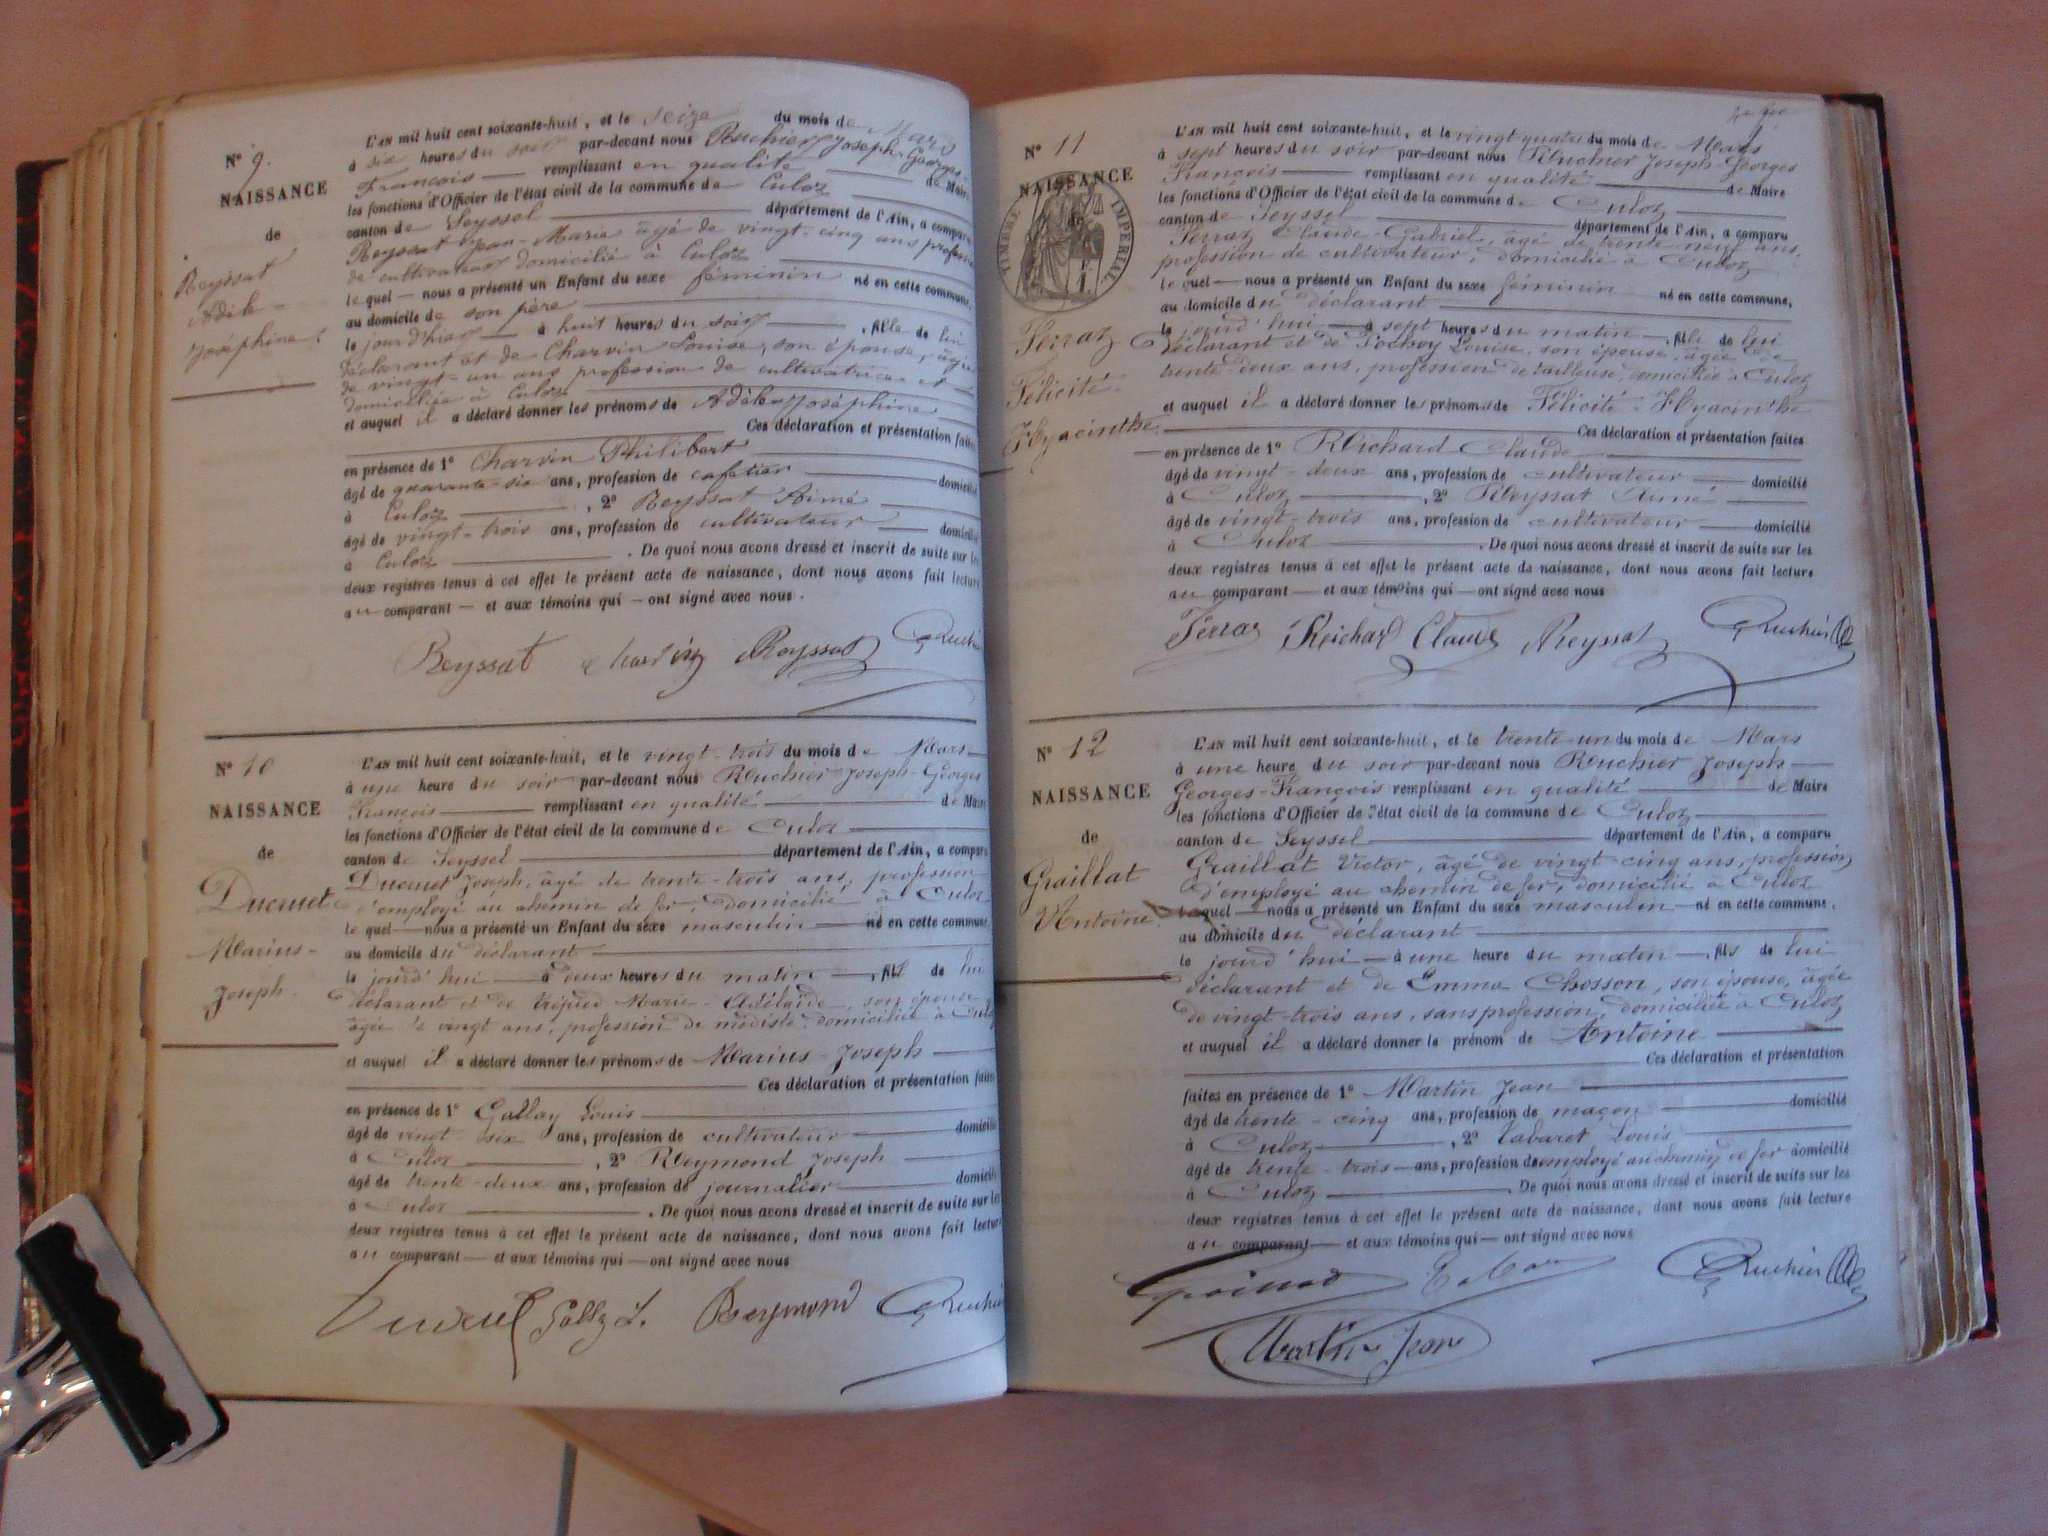 N° 9.
NAISSANCE
de
Reyssat
Adèle
Joséphine.
L'AN mil huit cent soixante-huit, et le seize du mois de Mars
à six heures du soir par-devant nous Ruchier Joseph-Georges
François remplissant en qualité de Maire
les fonctions d'Officier de l'état civil de la commune de Culoz
canton de Seyssel département de l'Ain, a comparu
Reyssat Jean-Marie âgé de vingt-cinq ans profession
de cultivateur domicilié à Culoz
lequel nous a présenté un Enfant du sexe féminin né en cette commune,
au domicile de son père
le jour d'hier à huit heures du soir, fille de lui
déclarant et de Charvin Louise, son épouse, âgée
de vingt-un ans profession de cultivatrice et
domiciliée à Culoz
et auquel il a déclaré donner les prénoms de Adèle-Joséphine
Ces déclaration et présentation faites
en présence de 1° Charvin Philibert
âgé de quarante-six ans, profession de cafetier domicilié
à Culoz, 2° Reyssat Aimé
âgé de vingt-trois ans, profession de cultivateur domicilié
à Culoz. De quoi nous avons dressé et inscrit de suite sur les
deux registres tenus à cet effet le présent acte de naissance, dont nous avons fait lecture
au comparant et aux témoins qui ont signé avec nous.
Reyssat Charvin Reyssat Ruchier
N° 10
NAISSANCE
de
Ducruet
Marius-
Joseph.
L'AN mil huit cent soixante-huit, et le vingt-trois du mois de Mars
à une heure du soir par-devant nous Ruchier Joseph-Georges
François remplissant en qualité de Maire
les fonctions d'Officier de l'état civil de la commune de Culoz
canton de Seyssel département de l'Ain, a comparu
Ducruet Joseph, âgé de trente-trois ans, profession
d'employé au chemin de fer, domicilié à Culoz
lequel nous a présenté un Enfant du sexe masculin né en cette commune
au domicile du déclarant
le jourd'hui à deux heures du matin, fils de lui
déclarant et de Marie-Adélaïde, son épouse
âgée de vingt ans, profession de modiste, domiciliée à Culoz
et auquel il a déclaré donner les prénoms de Marius-Joseph
Ces déclaration et présentation faites
en présence de 1° Gallay Louis
âgé de vingt-six ans, profession de cultivateur domicilié
à Culoz, 2° Reymond Joseph
âgé de trente-deux ans, profession de journalier domicilié
à Culoz. De quoi nous avons dressé et inscrit de suite sur les
deux registres tenus à cet effet le présent acte de naissance, dont nous avons fait lecture
au comparant et aux témoins qui ont signé avec nous
Ducruet Gallay L. Reymond Ruchier
N° 11
NAISSANCE
de
TIMBRE IMPÉRIAL
Ferraz
Félicité
Hyacinthe.
L'AN mil huit cent soixante-huit, et le vingt quatre du mois de Mars
à sept heures du soir par-devant nous Ruchier Joseph-Georges
François remplissant en qualité de Maire
les fonctions d'Officier de l'état civil de la commune de Culoz
canton de Seyssel département de l'Ain, a comparu
Ferraz Claude-Gabriel, âgé de trente-neuf ans,
profession de cultivateur, domicilié à Culoz
lequel nous a présenté un Enfant du sexe féminin né en cette commune,
au domicile du déclarant
le jourd'hui à sept heures du matin, fille de lui
déclarant et de Louise, son épouse, âgée de
trente-deux ans, profession de tailleuse, domiciliée à Culoz
et auquel il a déclaré donner les prénoms de Félicité-Hyacinthe
Ces déclaration et présentation faites
en présence de 1° Richard Claude
âgé de vingt-deux ans, profession de cultivateur domicilié
à Culoz, 2° Reyssat Aimé
âgé de vingt-trois ans, profession de cultivateur domicilié
à Culoz. De quoi nous avons dressé et inscrit de suite sur les
deux registres tenus à cet effet le présent acte de naissance, dont nous avons fait lecture
au comparant et aux témoins qui ont signé avec nous
Ferraz Reichard Claude Reyssat Ruchier
N° 12
NAISSANCE
de
Graillat
Antoine
L'AN mil huit cent soixante-huit, et le trente-un du mois de Mars
à une heure du soir par-devant nous Ruchier Joseph
Georges-François remplissant en qualité de Maire
les fonctions d'Officier de l'état civil de la commune de Culoz
canton de Seyssel département de l'Ain, a comparu
Graillat Victor, âgé de vingt-cinq ans, profession
d'employé au chemin de fer, domicilié à Culoz
lequel nous a présenté un Enfant du sexe masculin né en cette commune,
au domicile du déclarant
le jourd'hui à une heure du matin, fils de lui
déclarant et de Emma Chosson, son épouse, âgée
de vingt-trois ans, sans profession, domiciliée à Culoz
et auquel il a déclaré donner le prénom de Antoine
Ces déclaration et présentation
faites en présence de 1° Martin Jean
âgé de trente-cinq ans, profession de maçon domicilié
à Culoz, 2° Tabaret Louis
âgé de trente-trois ans, profession d'employé au chemin de fer domicilié
à Culoz. De quoi nous avons dressé et inscrit de suite sur les
deux registres tenus à cet effet le présent acte de naissance, dont nous avons fait lecture
au comparant et aux témoins qui ont signé avec nous
Ruchier
Martin Jean